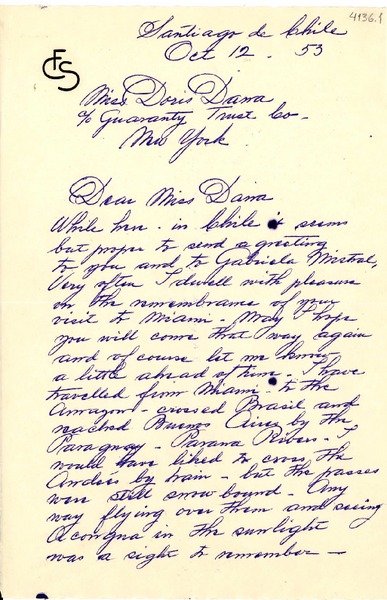 4136.1
Santiago de Chile
Oct 12. 53
CFS
Miss Doris Dana
c/o Guaranty Trust Co-
New York
Dear Miss Dana
While here - in Chile it seems
but proper to send a greeting
to you and to Gabriela Mistral,
Very often I dwell with pleasure
on the remembrance of your
visit to Miami - May I hope
you will come that way again
and of course let me know
a little ahead of time. I have
travelled from Miami - to the
Amazon - crossed Brasil and
reached Buenos Aires by the
Paraguay - Parana Rivers - I
would have liked to cross the
Andes by train - but the passes
were still snow bound - Any
way flying over them and seeing
Acongua in the sunlight
was a sight to remember -